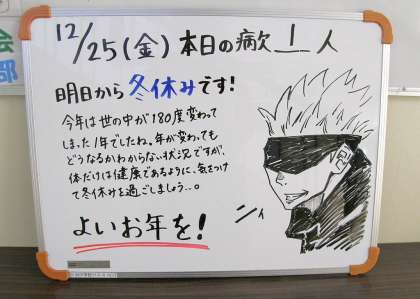 12/25(金)本日の病欠 1 人
明日から冬休みです!
今年は世の中が180度変わって
しまった1年でしたね。年が変わっても
どうなるかわからない状況ですが、
体だけは健康であるように、気をつけ
て冬休みを過ごしましょう…。
よいお年を!
ニィ